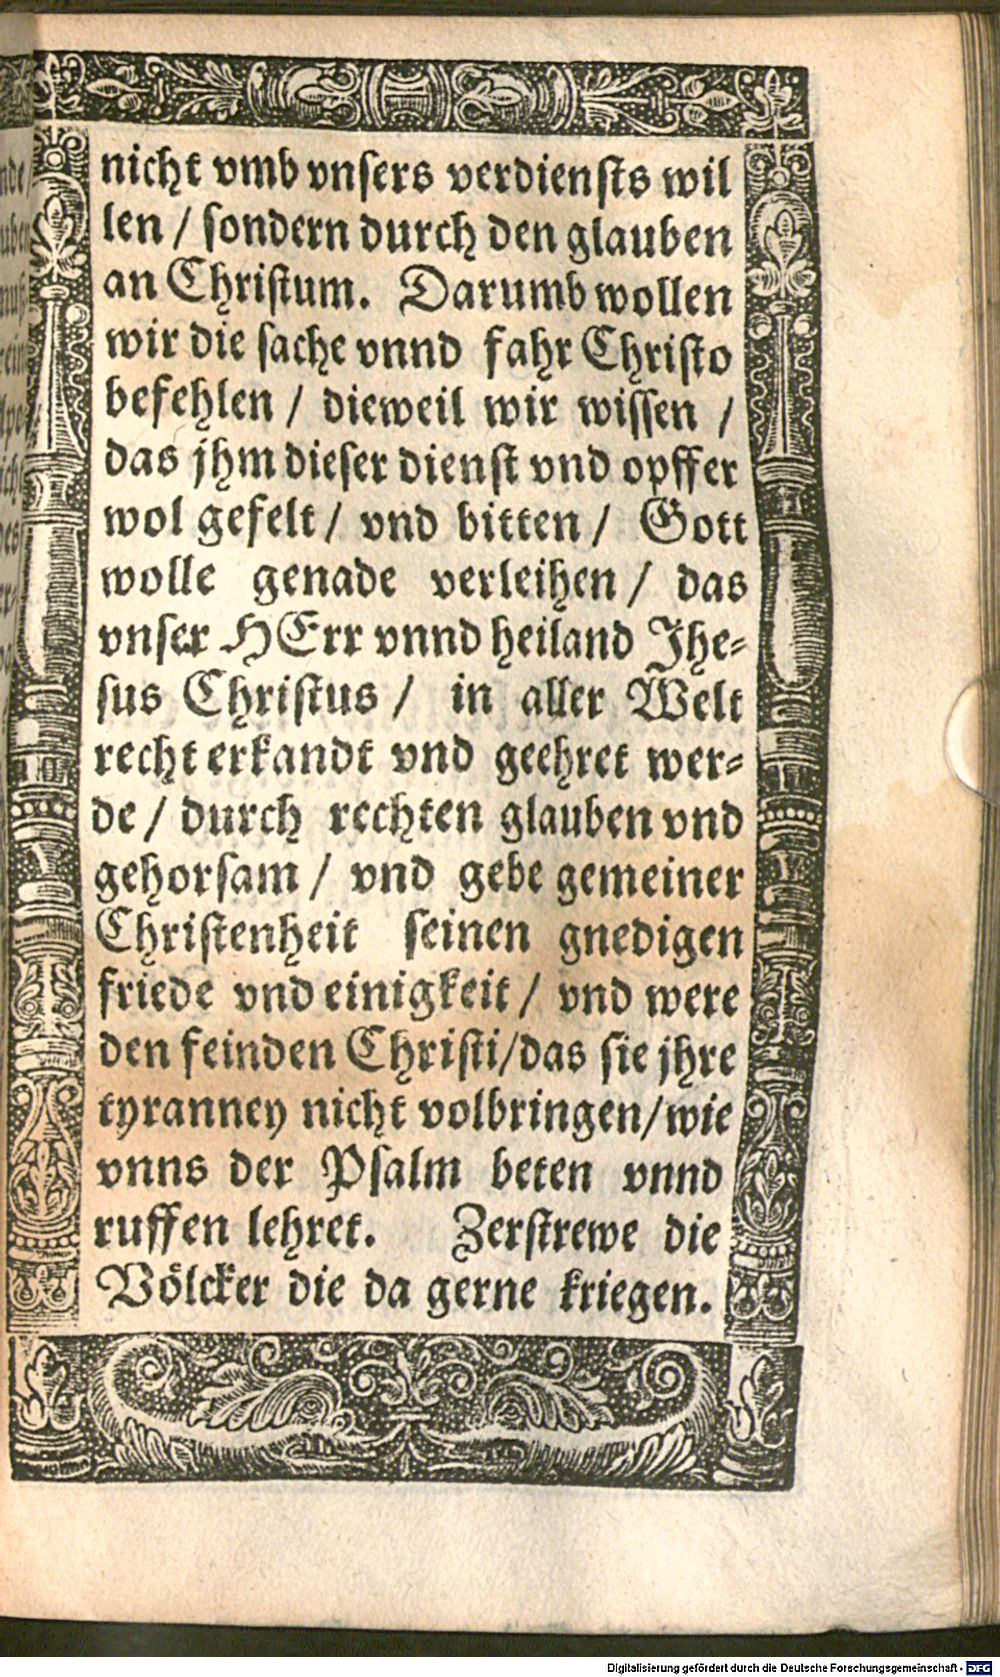 nicht vmb vnsers verdiensts wil
len / sondern durch den glauben
an Christum. Darumb wollen
wir die sache vnnd fahr Christo
befehlen / dieweil wir wissen /
das jhm dieser dienst vnd opffer
wol gefelt / vnd bitten / Gott
wolle genade verleihen / das
vnser HErr vnnd heiland Jhe-
sus Christus / in aller Welt
recht erkandt vnd geehret wer-
de / durch rechten glauben vnd
gehorsam / vnd gebe gemeiner
Christenheit seinen gnedigen
friede vnd einigkeit / vnd were
den feinden Christi/das sie jhre
tyranney nicht volbringen/wie
vnns der Psalm beten vnnd
ruffen lehret. Zerstrewe die
Völcker die da gerne kriegen.
Digitalisierung gefördert durch die Deutsche Forschungsgemeinschaft - DFG